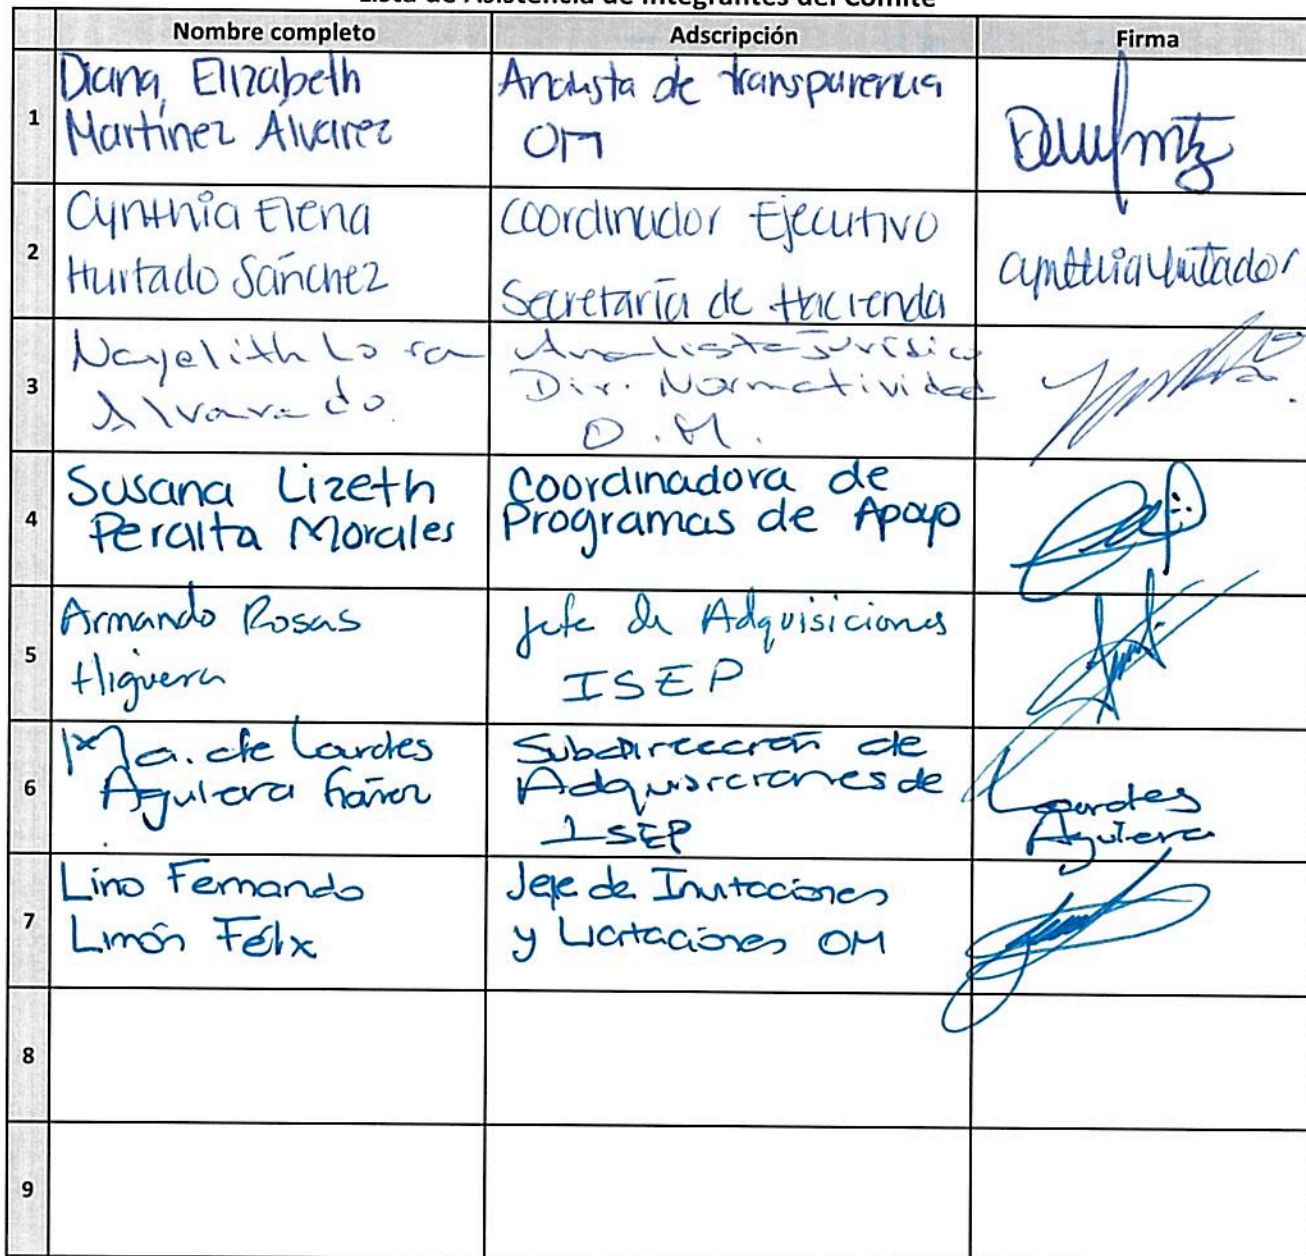 Lista de Asistencia de Integrantes del Comité
Nombre completo Adscripción Firma
1
Diana Elizabeth
Martínez Alvarez
Analista de transparencia
OM
2
Cynthia Elena
Hurtado Sánchez
Coordinador Ejecutivo
Secretaría de Hacienda
3
Nayelith Lora
Alvarado.
Analista Jurídico
Dir. Normatividad
O.M.
4
Susana Lizeth
Peralta Morales
Coordinadora de
Programas de Apoyo
5
Armando Rosas
Higuera
Jefe de Adquisiciones
ISEP
6
Ma. de Lourdes
Aguilera
Subdirección de
Adquisiciones de
ISEP
Lourdes
Aguilera
7
Lino Fernando
Limón Félix
Jefe de Invitaciones
y Licitaciones OM
8
9